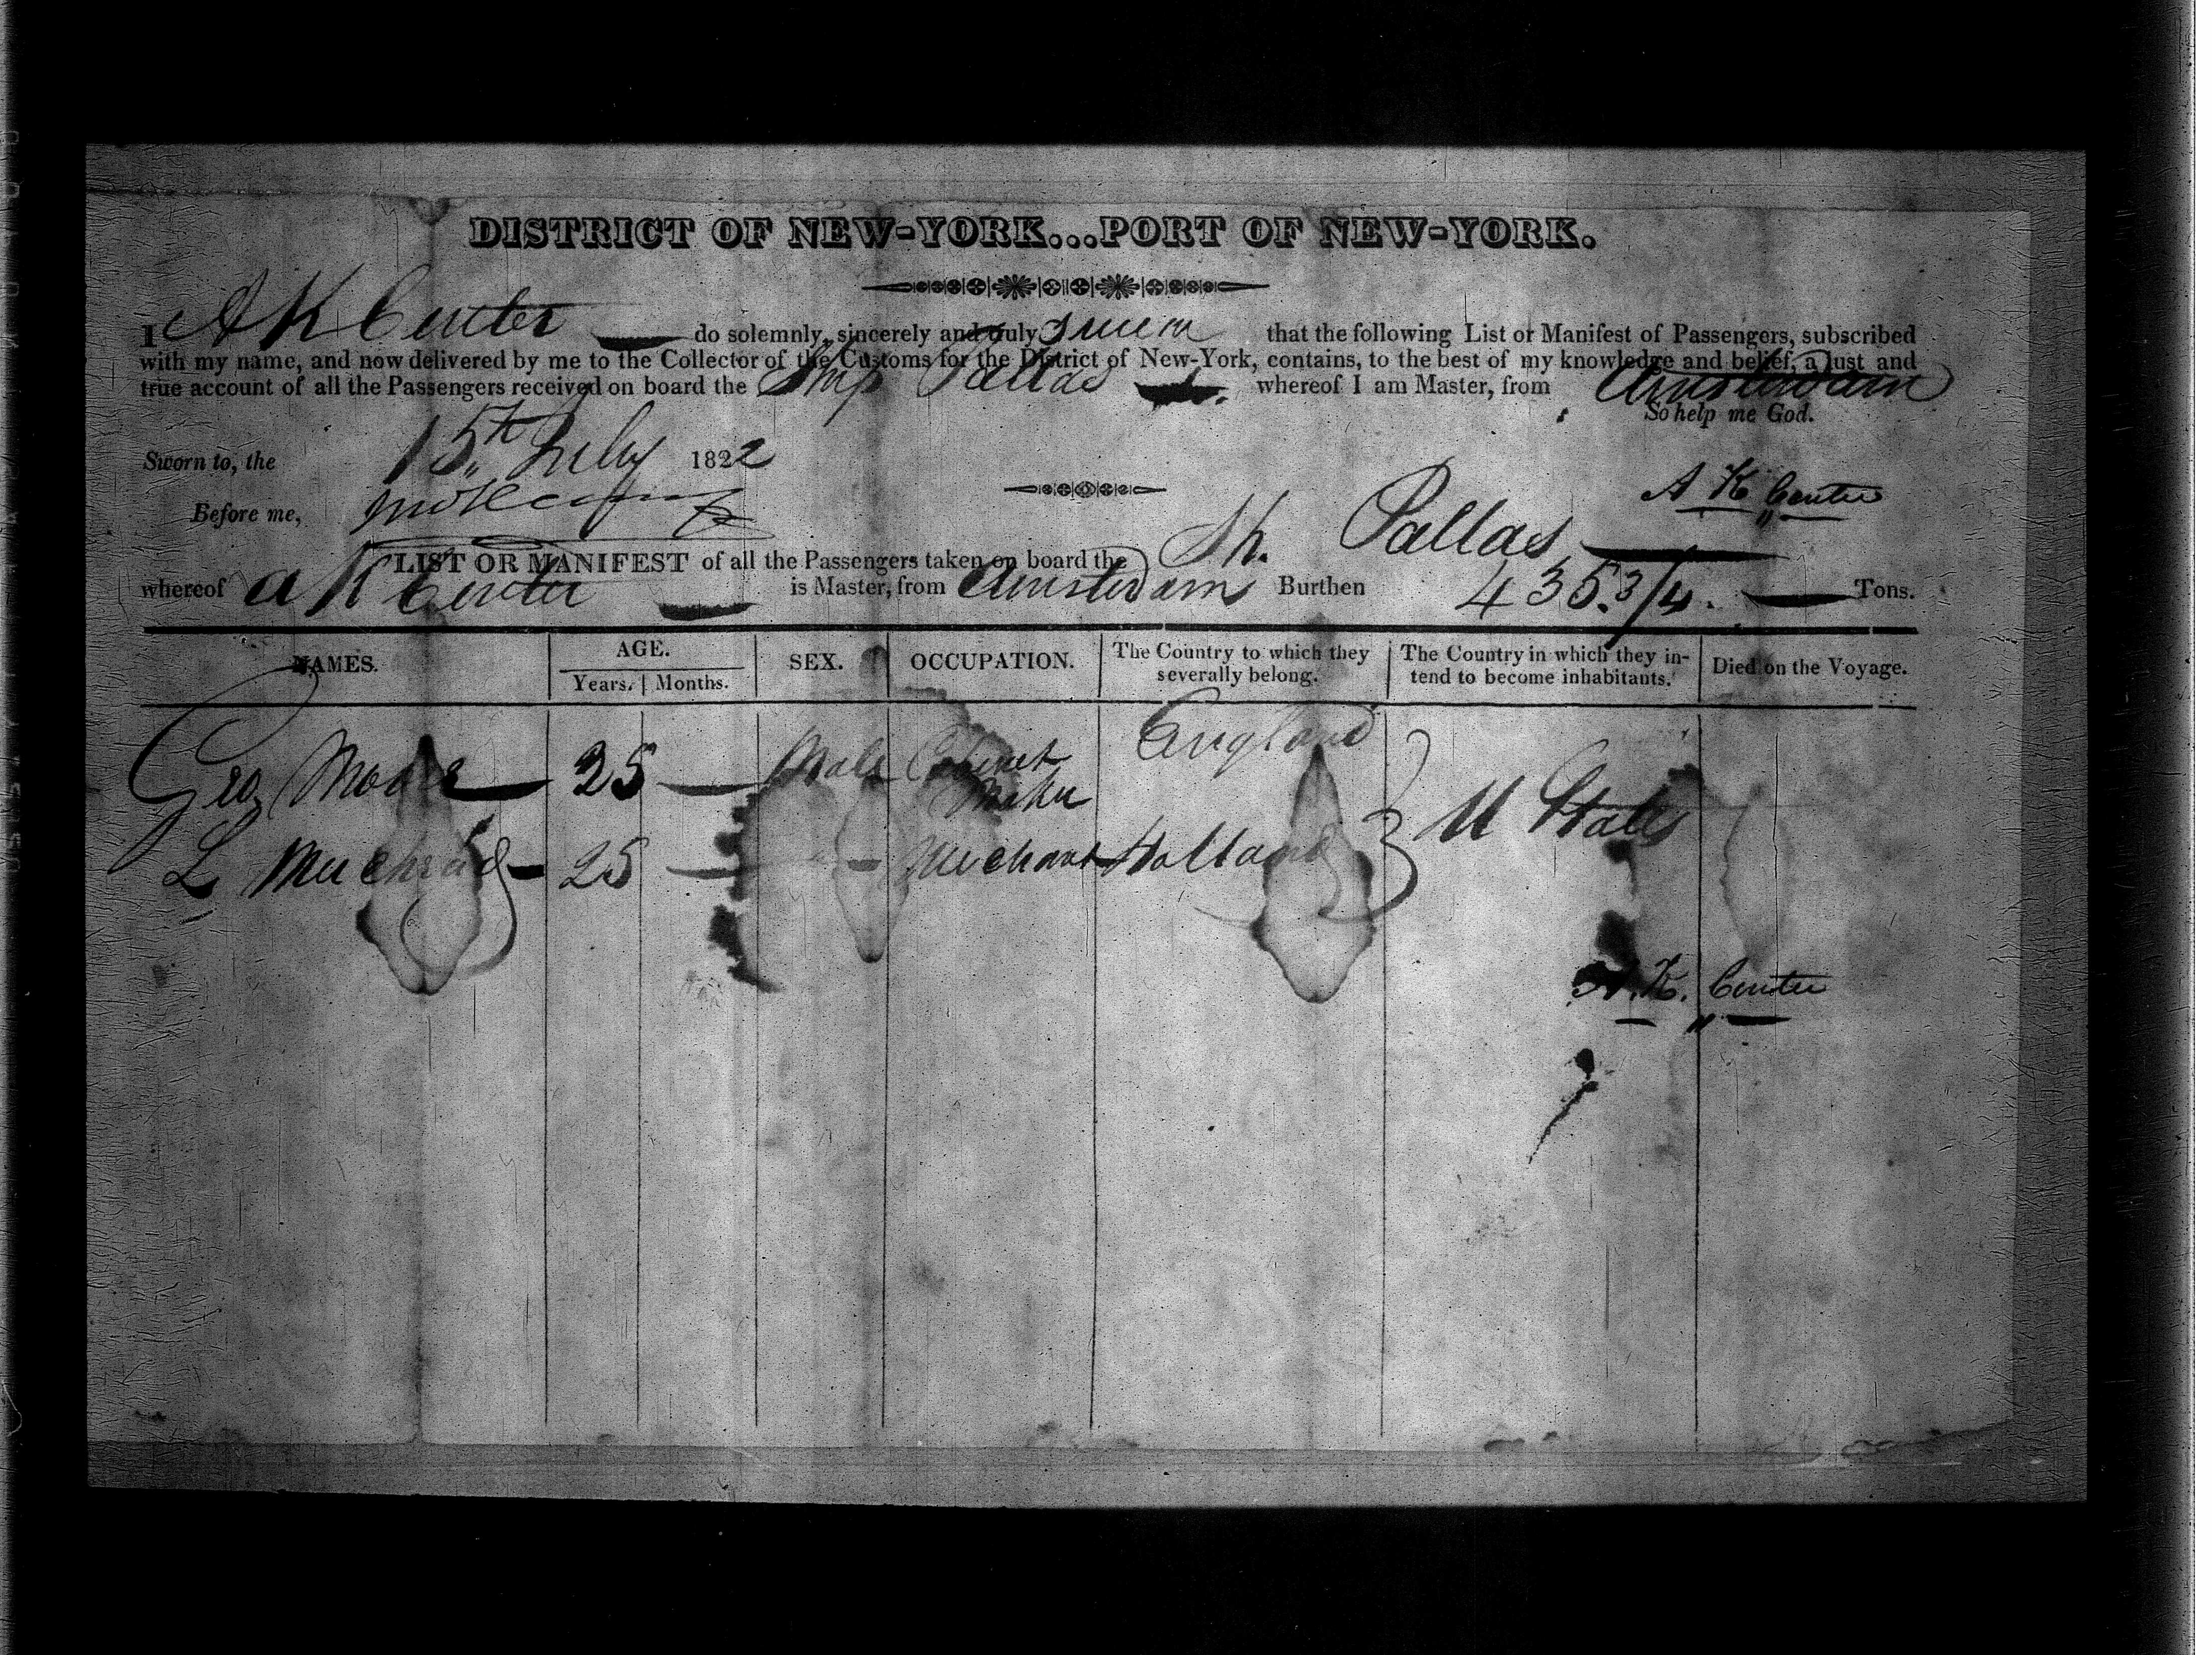 DISTRICT OF NEW-YORK...PORT OF NEW-YORK.
I A K Center do solemnly, sincerely and truly swear that the following List or Manifest of Passengers, subscribed
with my name, and now delivered by me to the Collector of the Customs for the District of New-York, contains, to the best of my knowledge and belief, a just and
true account of all the Passengers received on board the Ship Pallas whereof I am Master, from Amsterdam
So help me God.
Sworn to, the 15th July 1822
A K Center
Before me,
LIST OR MANIFEST of all the Passengers taken on board the Sh. Pallas
whereof A K Center is Master, from Amsterdam Burthen 435.3/4. Tons.
NAMES. AGE. SEX. OCCUPATION. The Country to which they severally belong. The Country in which they in-tend to become inhabitants. Died on the Voyage.
Years. Months.
Geo Moore 25 Male Cabinet Maker England
U States
L 25 Merchant Holland
A. K. Center